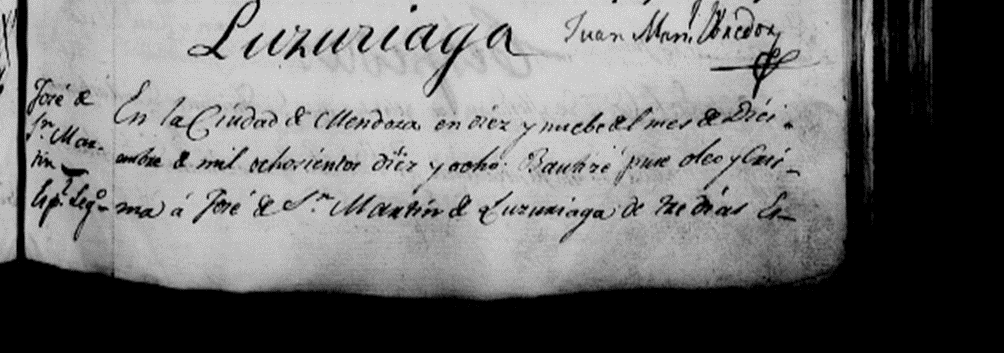 Luzuriaga
Juan Man.l Obredor
José de
S.n Mar-
tin
Esp.l Leg.o
En la Ciudad de Mendoza en diez y nuebe del mes de Dici-
embre de mil ochosientos diez y ocho Bautizé puse oleo y Cris-
ma á José de S.n Martin de Luzuriaga de tre dias Es-